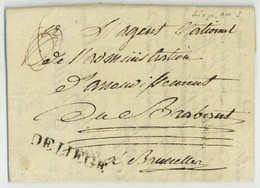 Liège an 3
L'agent national
de l'administration
d'arrondissement
Du Brabant
DE LIEGE
à Bruxelles